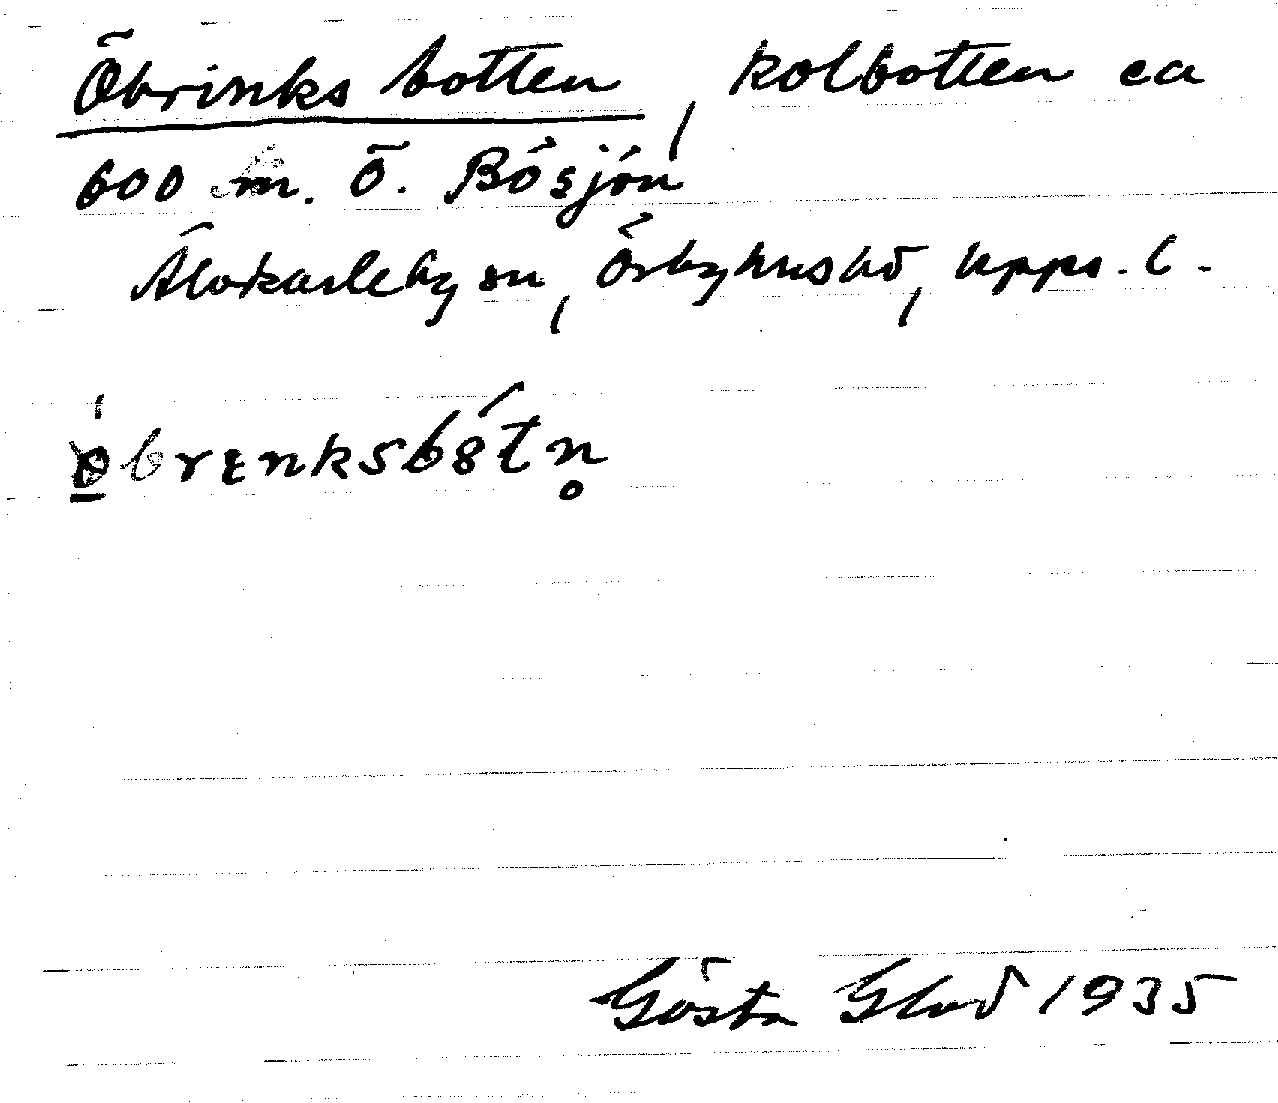 Öbrinks botten, kolbotten ca
600 m. Ö. Bösjön
Älvkarleby sn, Örbyhus hd, Upps. l.
öbrɪnksbȯtn̥
Gösta Glad 1935